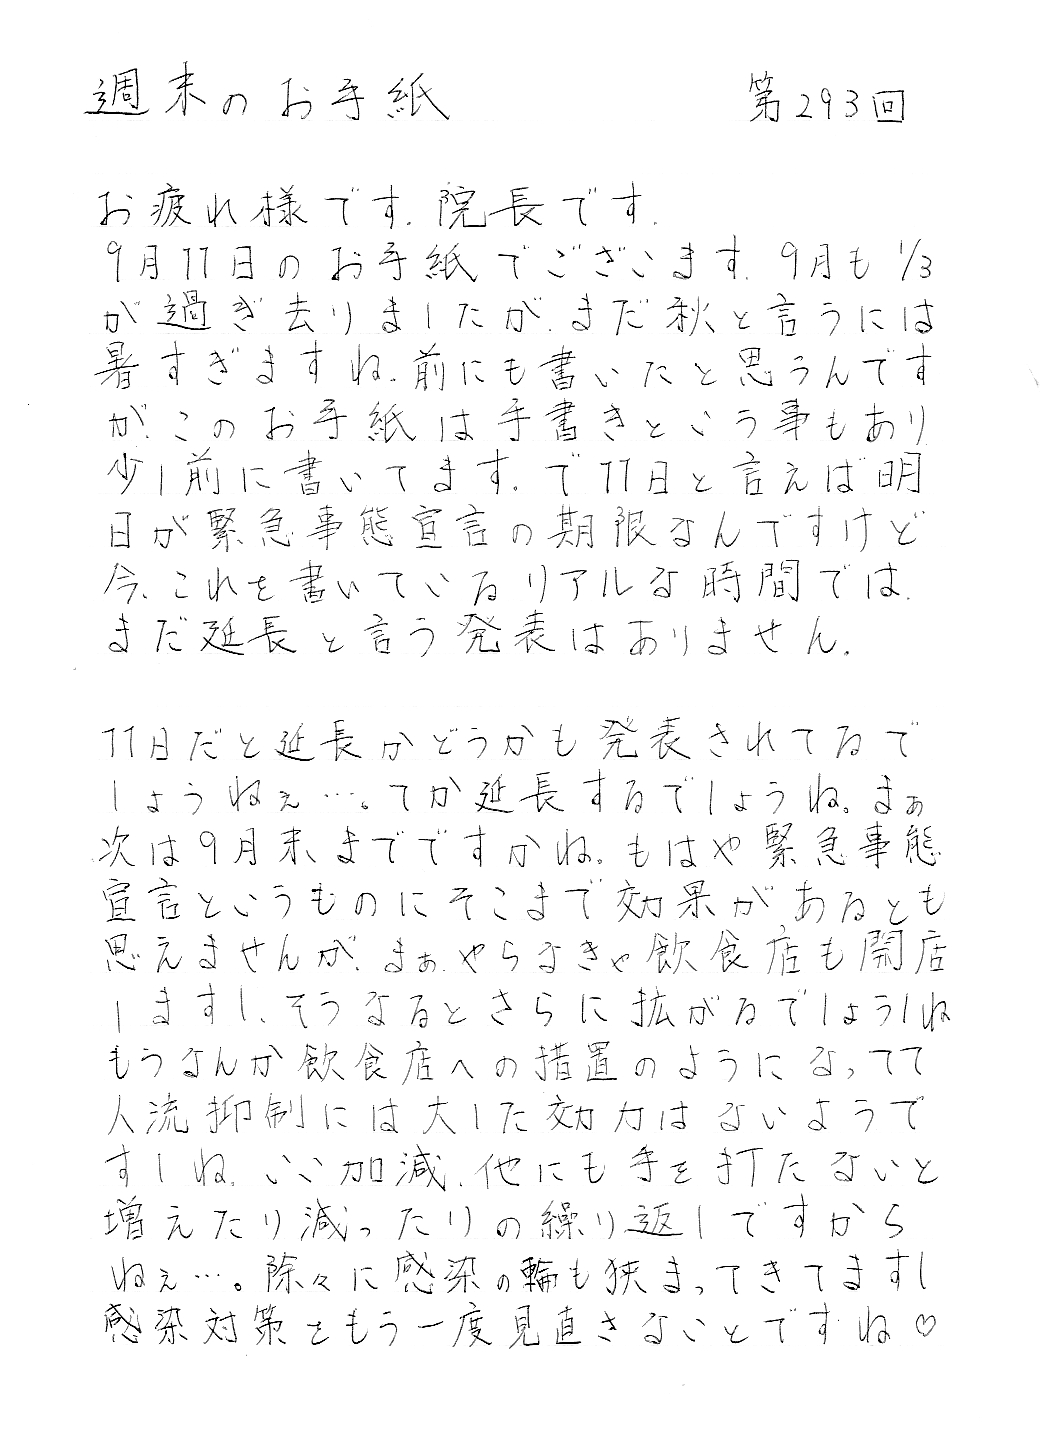 週末のお手紙 第293回
お疲れ様です。院長です。
9月11日のお手紙でございます。9月も1/3
が過ぎ去りましたが、まだ秋と言うには
暑すぎますね。前にも書いたと思うんです
が、このお手紙は手書きという事もあり
少し前に書いてます。で11日と言えば明
日が緊急事態宣言の期限なんですけど
今、これを書いているリアルな時間では、
まだ延長と言う発表はありません。
11日だと延長かどうかも発表されてるで
しょうねぇ…。てか延長するでしょうね。まぁ
次は9月末までですかね。もはや緊急事態
宣言というものにそこまで効果があるとも
思えませんが、まぁ、やらなきゃ飲食店も開店
しますし、そうなるとさらに拡がるでしょうしね
もうなんか飲食店への措置のようになってて
人流抑制には大した効力はないようで
すしね。いい加減、他にも手を打たないと
増えたり減ったりの繰り返しですから
ねぇ…。除々に感染の輪も狭まってきてますし
感染対策をもう一度見直さないとですね♡